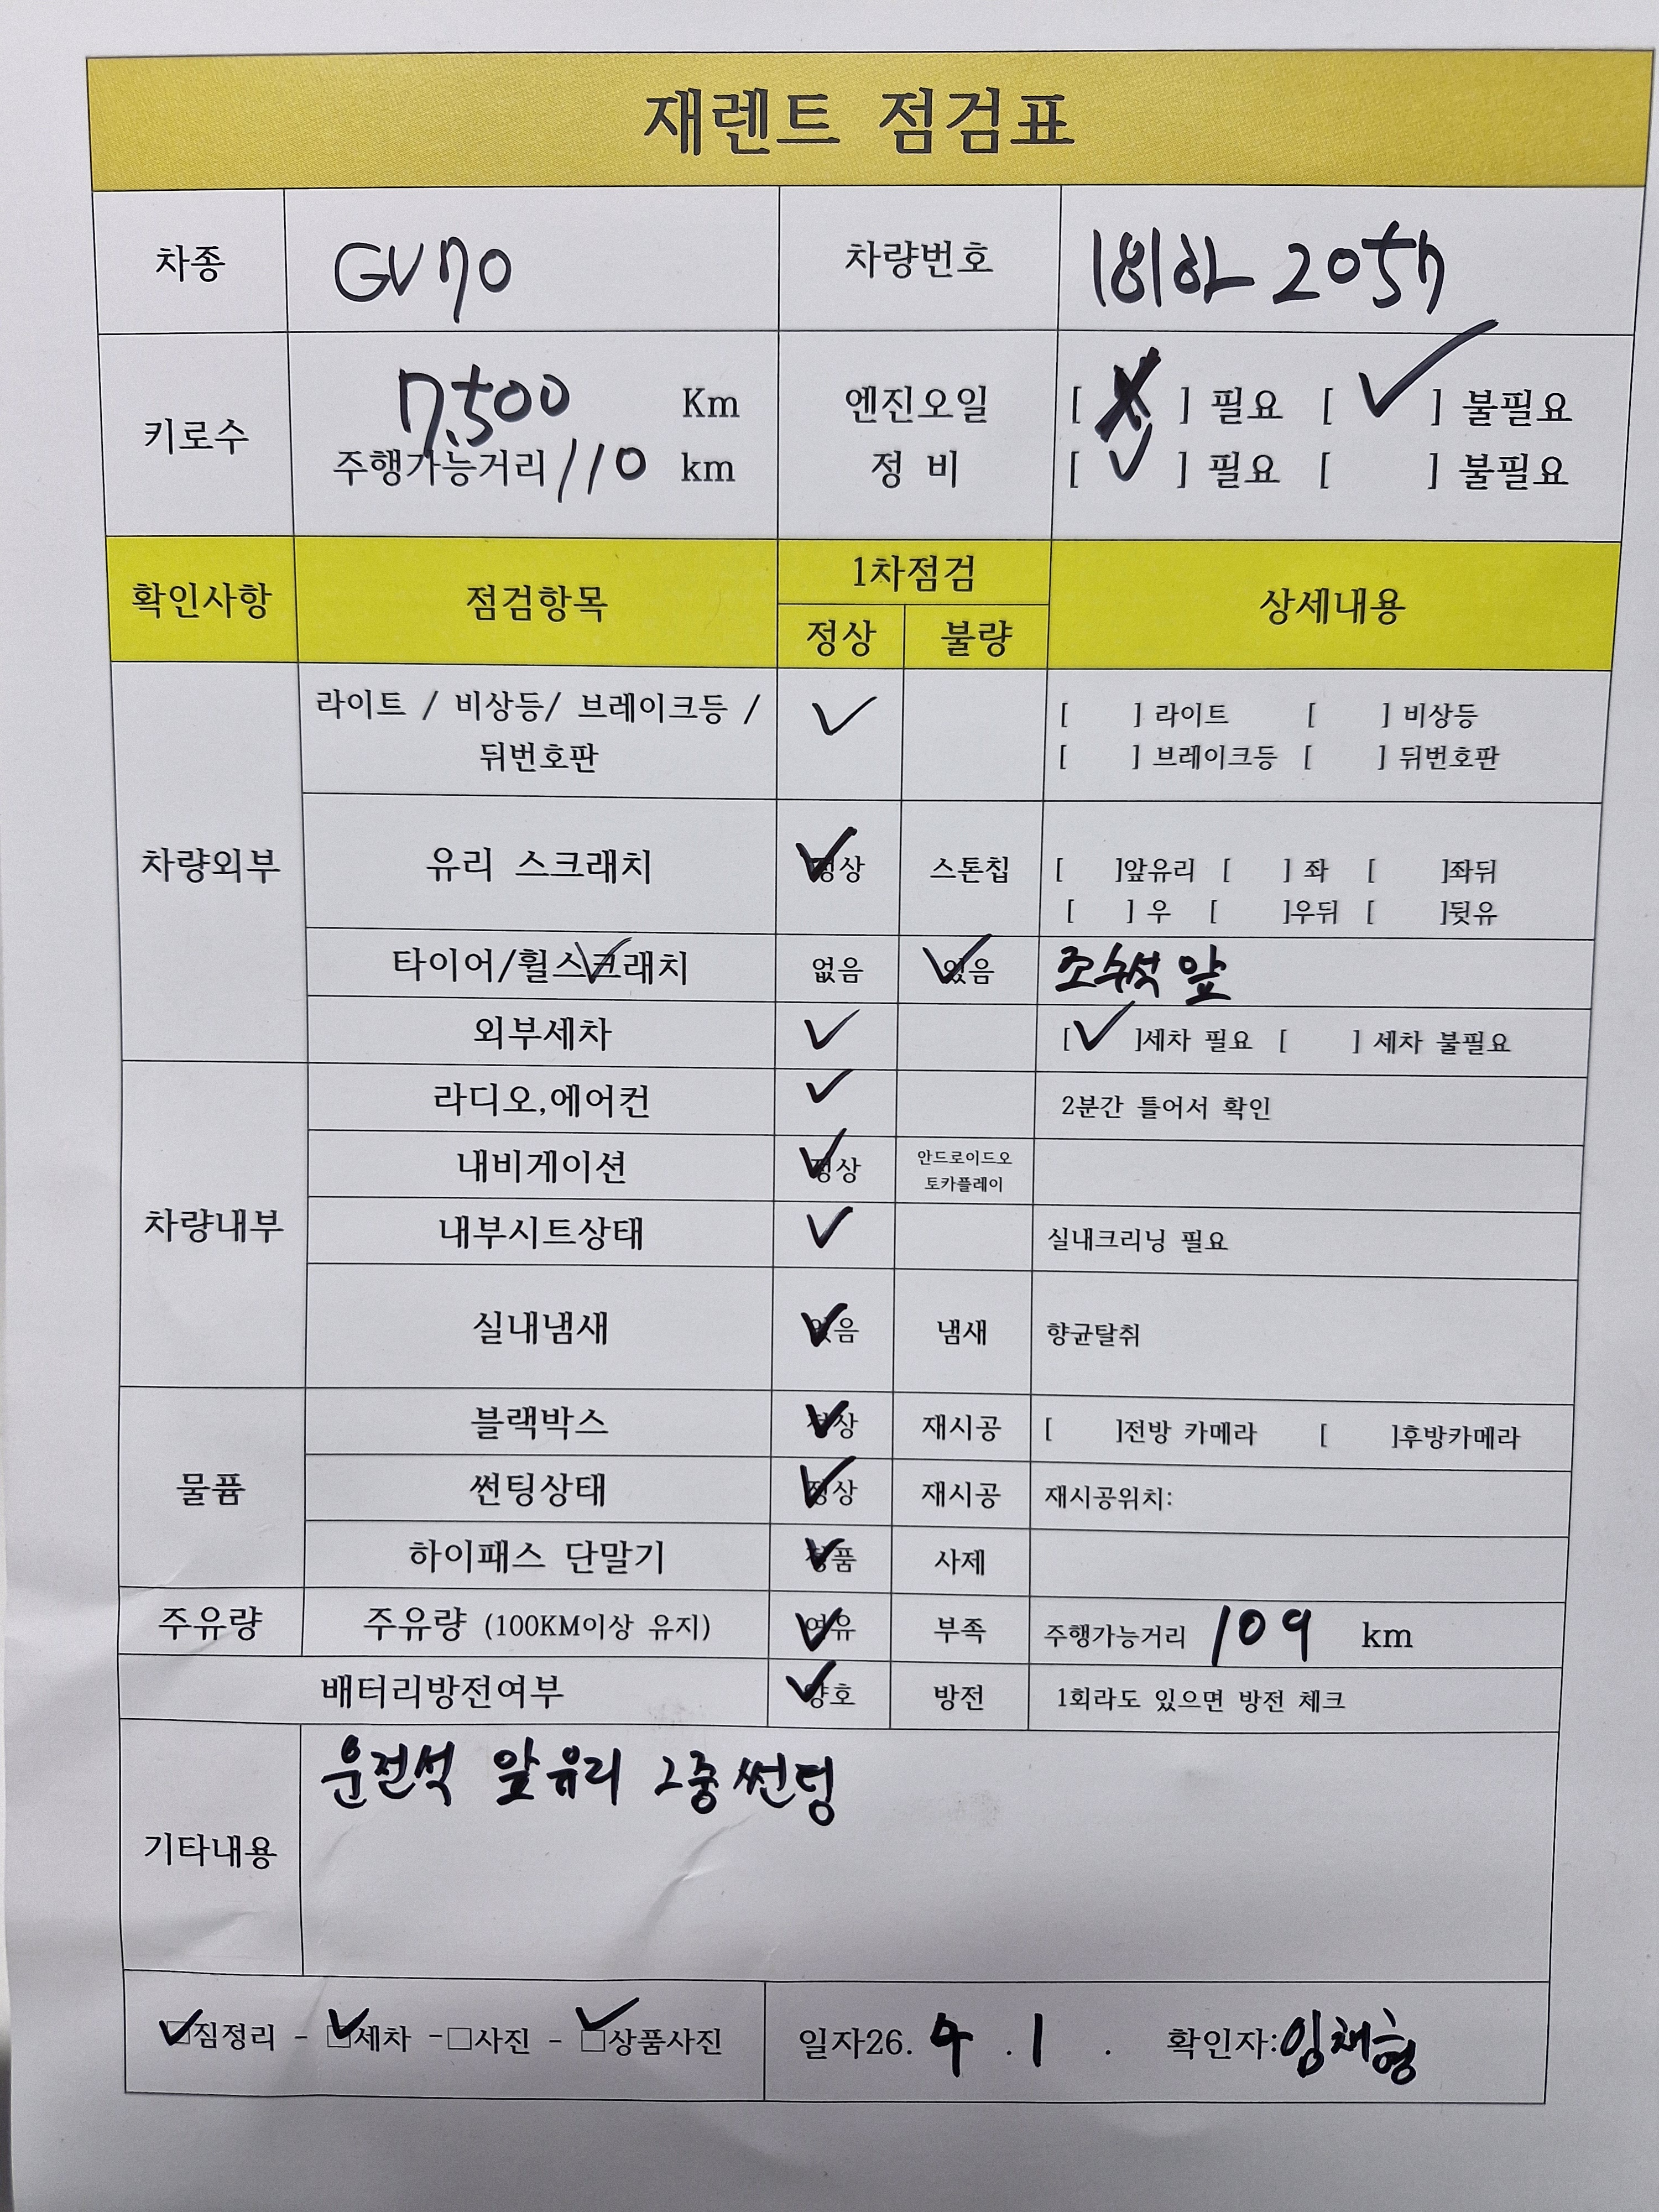 재렌트 점검표
차종 GV70 차량번호 181하 2057
키로수 7,500 Km 엔진오일 [ ] 필요 [ ✓ ] 불필요
주행가능거리 110 km 정 비 [ ✓ ] 필요 [ ] 불필요
확인사항 점검항목 1차점검 상세내용
정상 불량
차량외부
라이트 / 비상등/ 브레이크등 / ✓ [ ] 라이트 [ ] 비상등
뒤번호판 [ ] 브레이크등 [ ] 뒤번호판
유리 스크래치 ✓ 정상 스톤칩 [ ]앞유리 [ ] 좌 [ ]좌뒤
[ ] 우 [ ]우뒤 [ ]뒷유
타이어/휠스크래치 없음 ✓ 있음 조수석 앞
외부세차 ✓ [ ✓ ]세차 필요 [ ] 세차 불필요
차량내부
라디오,에어컨 ✓ 2분간 틀어서 확인
내비게이션 ✓ 정상 안드로이드오
토카플레이
내부시트상태 ✓ 실내크리닝 필요
실내냄새 ✓ 없음 냄새 향균탈취
물품
블랙박스 ✓ 정상 재시공 [ ]전방 카메라 [ ]후방카메라
썬팅상태 ✓ 정상 재시공 재시공위치:
하이패스 단말기 ✓ 정품 사제
주유량 주유량 (100KM이상 유지) ✓ 여유 부족 주행가능거리 109 km
배터리방전여부 ✓ 양호 방전 1회라도 있으면 방전 체크
기타내용 운전석 앞유리 2중썬팅
☑짐정리 - ☑세차 -□사진 - ☑상품사진 일자26. 4 . 1 . 확인자:임채형